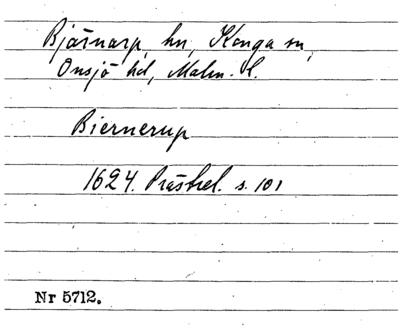 Bjärnarp, hn, Konga sn,
Onsjö hd, Malm. l.
Biernerup
1624. Prästrel. s. 101
Nr 5712.